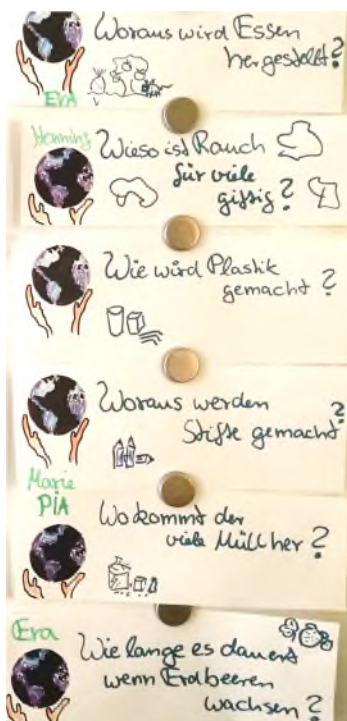 Woraus wird Essen
hergestellt?
Eva
Henning
Wieso ist Rauch
für viele
giftig?
Wie wird Plastik
gemacht?
Woraus werden
Stifte gemacht?
Marie
PiA
Wo kommt der
viele Müll her?
Eva
Wie lange es dauert
wenn Erdbeeren
wachsen?